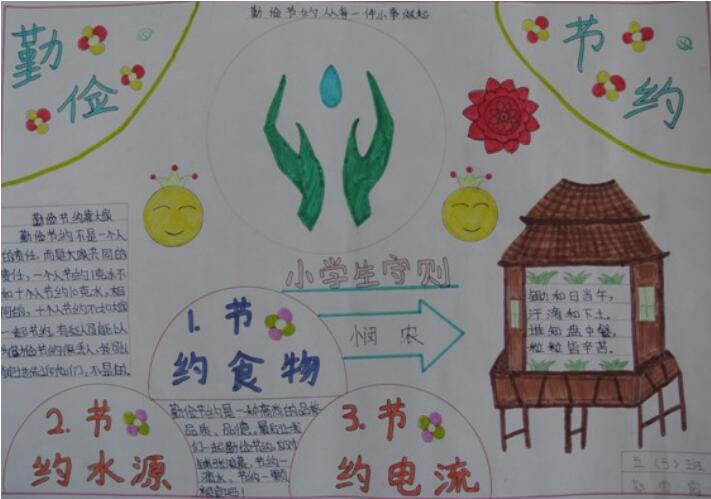 勤俭节约从每一件小事做起
勤俭
节约
勤俭节约靠大家
勤俭节约不是一个人
的责任,而是大家共同的
责任,一个人节约1克水不
和十个人节约10克水,相
同的,十个人节约不如大家
一起节约。
小学生守则
悯 农
锄禾日当午,
汗滴禾下土。
谁知盘中餐,
粒粒皆辛苦。
1.节
约食物
2.节
约水源
3.节
约电流
勤俭节约是一种高尚的品
品质、品德,最后让我
们一起勤俭节约
节约一
滴水、节约一颗
粮食吧!
五(5)班